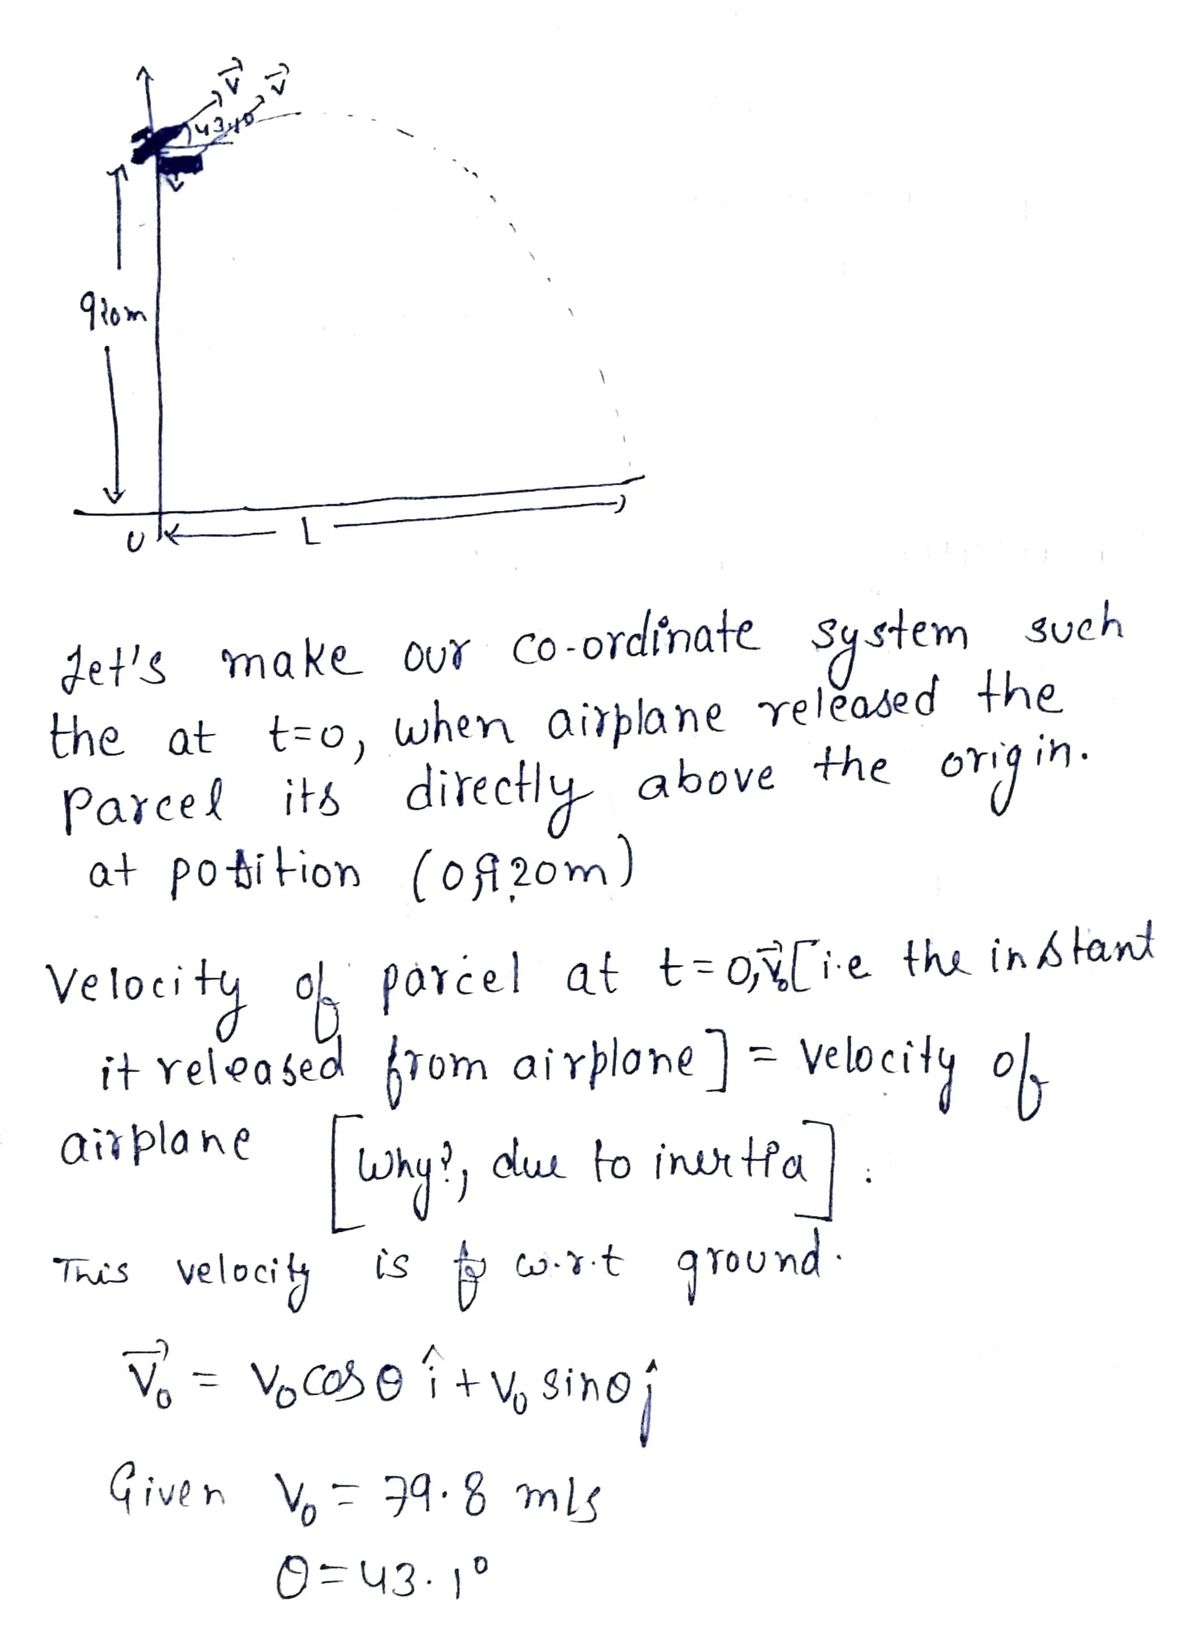 V⃗
V⃗
43.1°
920m
O
L
Let's make our co-ordinate system such
the at t=0, when airplane released the
Parcel its directly above the origin.
at position (0,920m)
Velocity of parcel at t=0,V⃗₀[i.e the instant
it released from airplane] = Velocity of
airplane [Why?, due to inertia].
This velocity is w.r.t ground.
V⃗₀ = V₀cosθ î + V₀ sinθ ĵ
Given V₀ = 79.8 m/s
θ = 43.1°